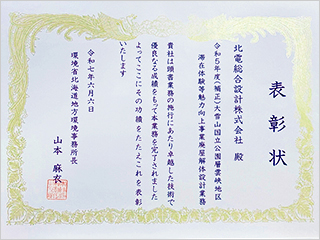 表彰状
北電総合設計株式会社 殿
令和5年度(補正)大雪山国立公園層雲峡地区
滞在体験等魅力向上事業廃屋解体設計業務
貴社は頭書業務の施行にあたり卓越した技術で
優良なる成績をもって本業務を完了されました
よってここにその功績をたたえこれを表彰
いたします
令和七年六月六日
環境省北海道地方環境事務所長
山本 麻衣